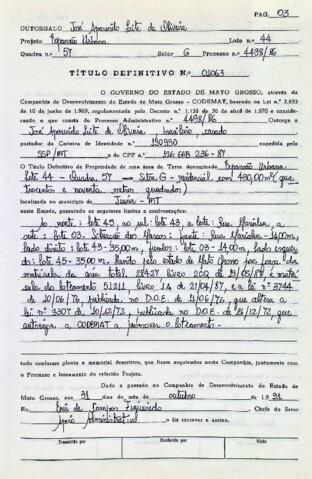 PAG. 03
OUTORGADO José Aparecido Leite de Oliveira
Projeto Expansão Urbana Lote n.º 44
Quadra n.º 57 Setor G Processo n.º 4498/86
TÍTULO DEFINITIVO N.º 01063
O GOVERNO DO ESTADO DE MATO GROSSO, através da
Companhia de Desenvolvimento do Estado de Mato Grosso - CODEMAT, baseado na Lei n.º
10 de junho de 1969, regulamentado pelo Decreto n.º 1.138 de 30 de abril de 1970 e considerando
o que consta do Processo Administrativo n.º 4498/86 Outorga a
José Aparecido Leite de Oliveira brasileiro, casado
portador da Carteira de Identidade n.º 190930 expedida pela
SSP/MT e do CPF n.º 126 668 236-87
O Título Definitivo de Propriedade de uma área de Terra denominada Expansão Urbana
lote 44 - Quadra 57 - Setor G - residencial, com 490,00m² (quatrocentos e noventa metros quadrados)
localizada no município de Juína - MT
neste Estado, possuindo os seguintes limites e confrontações:
ao norte: lote 45, ao sul: lote 43, a leste: Rua
oeste: lote 03. Rua 14,00m,
lado direito: lote 43 - 35,00m, fundos: lote 03 - 14,00m, lado esquer-
do: lote 45 - 35,00m. Estado de Mato Grosso por força da
matrícula da área total 28427 livro 2CQ de 19/05/8
do loteamento 51211 livro 1A de 21/04/87 e a lei nº 3744
de 10/06/76, publicada no D.O.E. de 11/06/76, que altera a
lei nº 3307 de 10/12/72, publicada no D.O.E. de 26/12/72, que
autoriza a CODEMAT a promover o loteamento.
tudo conforme planta e memorial descritivo, que foram arquivados nesta Companhia, juntamente com
o Processo e Intersamento do referido Projeto.
Dado e passado na Companhia de Desenvolvimento do Estado de
Mato Grosso, aos 31 dias do mês de outubro de 1991
Eu, de Campos Figueiredo Chefe do Setor
Apoio Administrativo o fiz escrever e assino.
Transcrito por Conferido por Visto